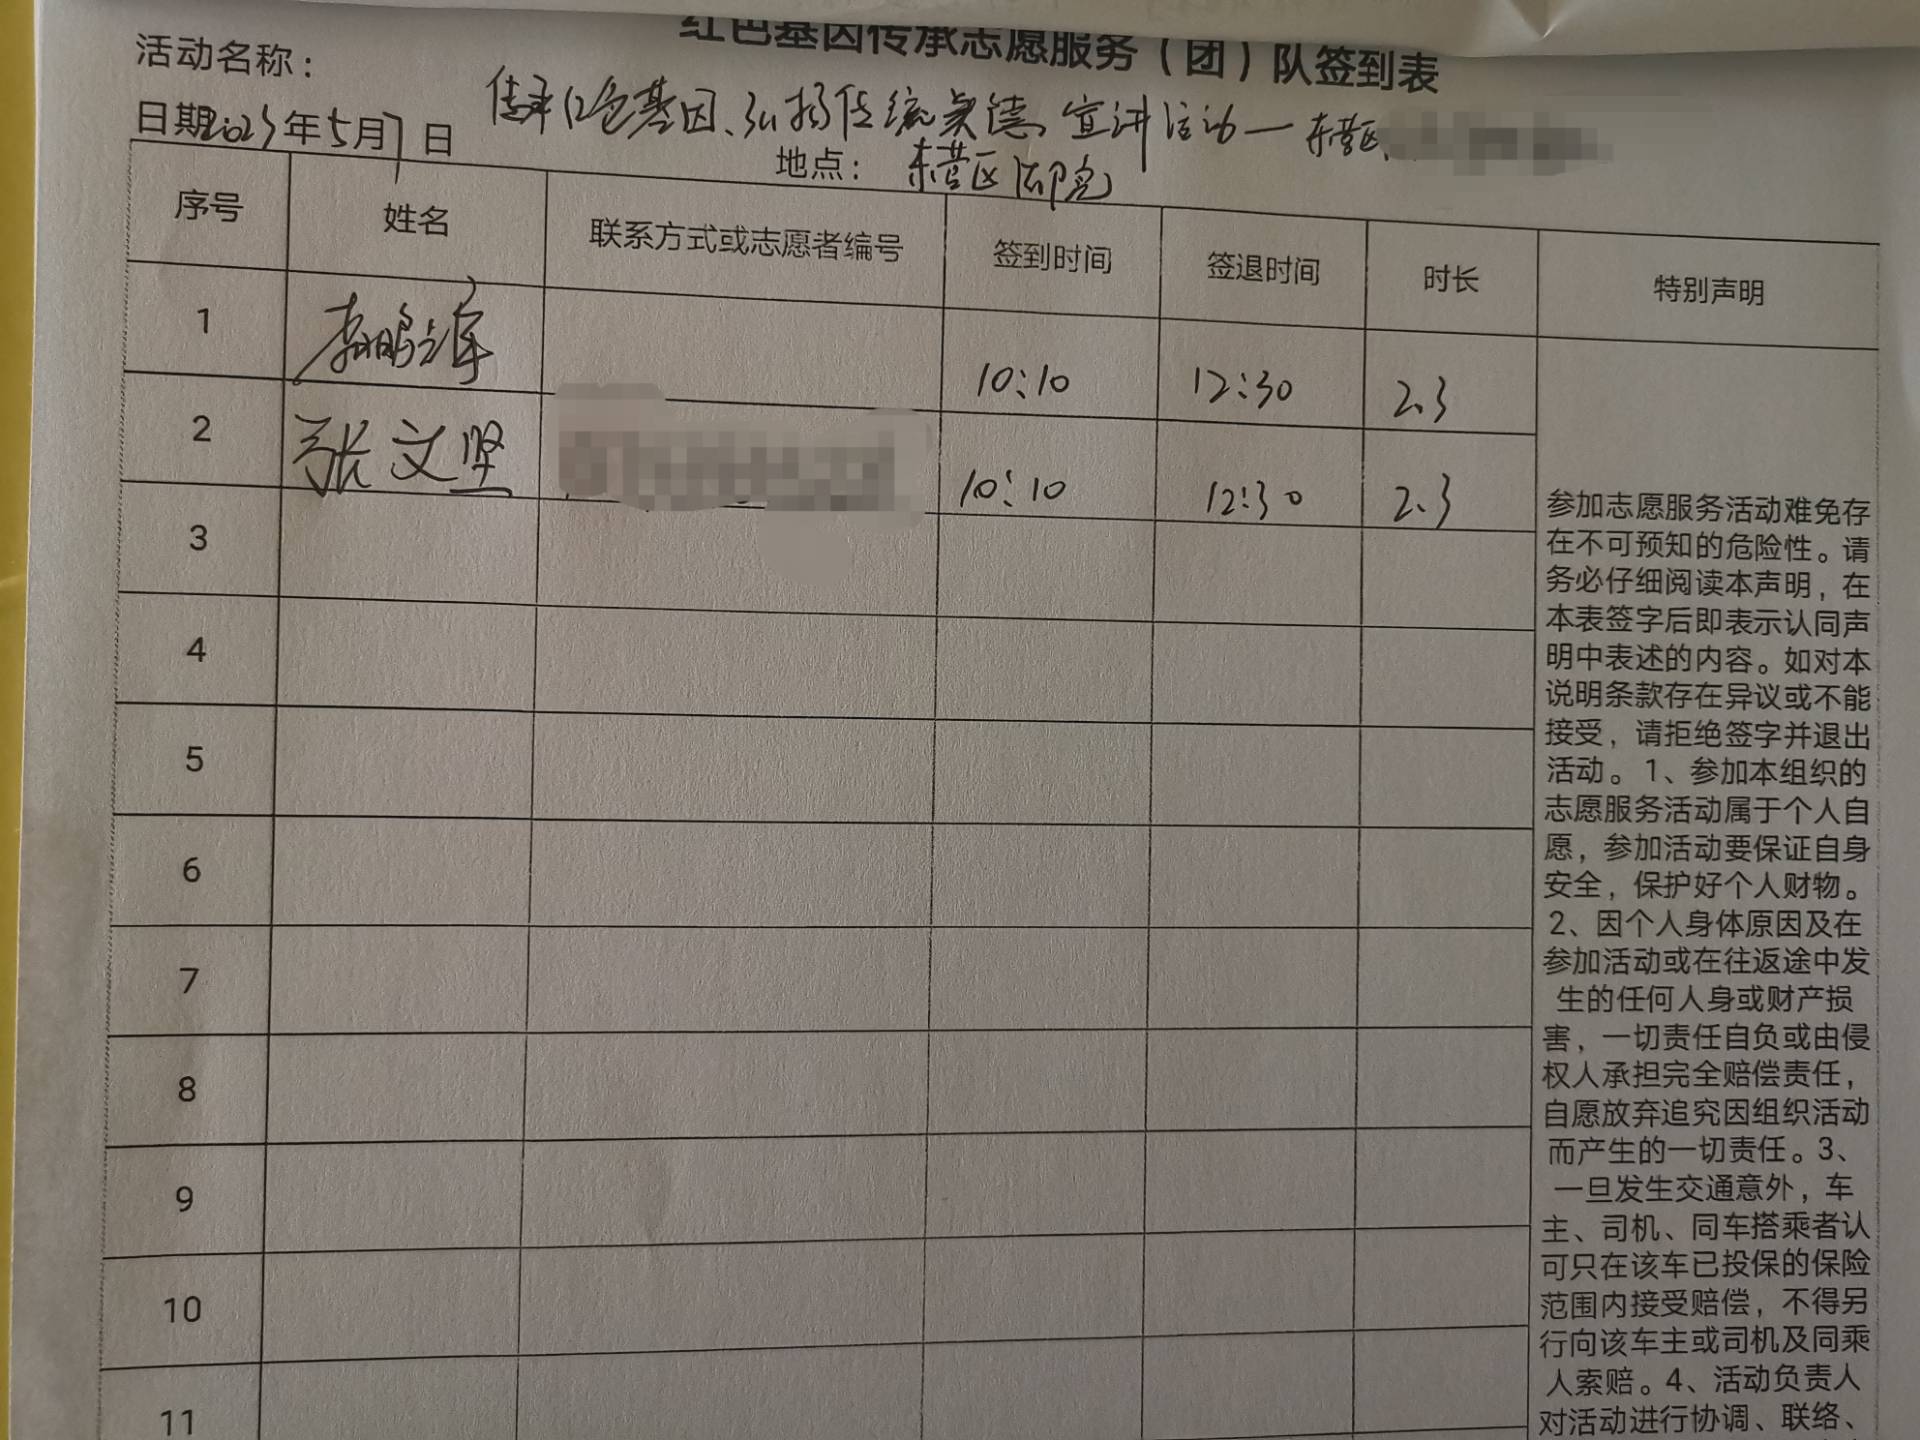 红色基因传承志愿服务（团）队签到表
活动名称：
传承红色基因、弘扬传统美德 宣讲活动—东营区
日期2023年5月7日
地点：东营区
序号 姓名 联系方式或志愿者编号 签到时间 签退时间 时长 特别声明
1 10:10 12:30 2.3
2 张文坚 10:10 12:30 2.3
3
4
5
6
7
8
9
10
11
参加志愿服务活动难免存
在不可预知的危险性。请
务必仔细阅读本声明，在
本表签字后即表示认同声
明中表述的内容。如对本
说明条款存在异议或不能
接受，请拒绝签字并退出
活动。1、参加本组织的
志愿服务活动属于个人自
愿，参加活动要保证自身
安全，保护好个人财物。
2、因个人身体原因及在
参加活动或在往返途中发
生的任何人身或财产损
害，一切责任自负或由侵
权人承担完全赔偿责任，
自愿放弃追究因组织活动
而产生的一切责任。3、
一旦发生交通意外，车
主、司机、同车搭乘者认
可只在该车已投保的保险
范围内接受赔偿，不得另
行向该车主或司机及同乘
人索赔。4、活动负责人
对活动进行协调、联络、